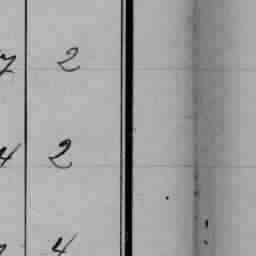 7 2
4 2
4